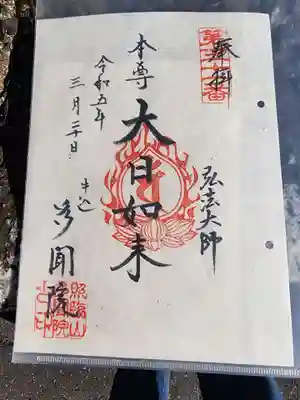 奉拝
弘法大師
本尊
大日如来
令和五年
三月三十日
牛込
多聞院